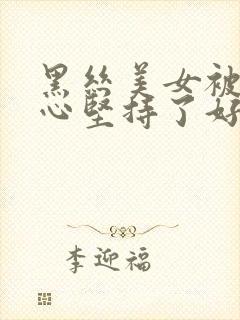 黑丝美女被
心坚持了好
李迎福